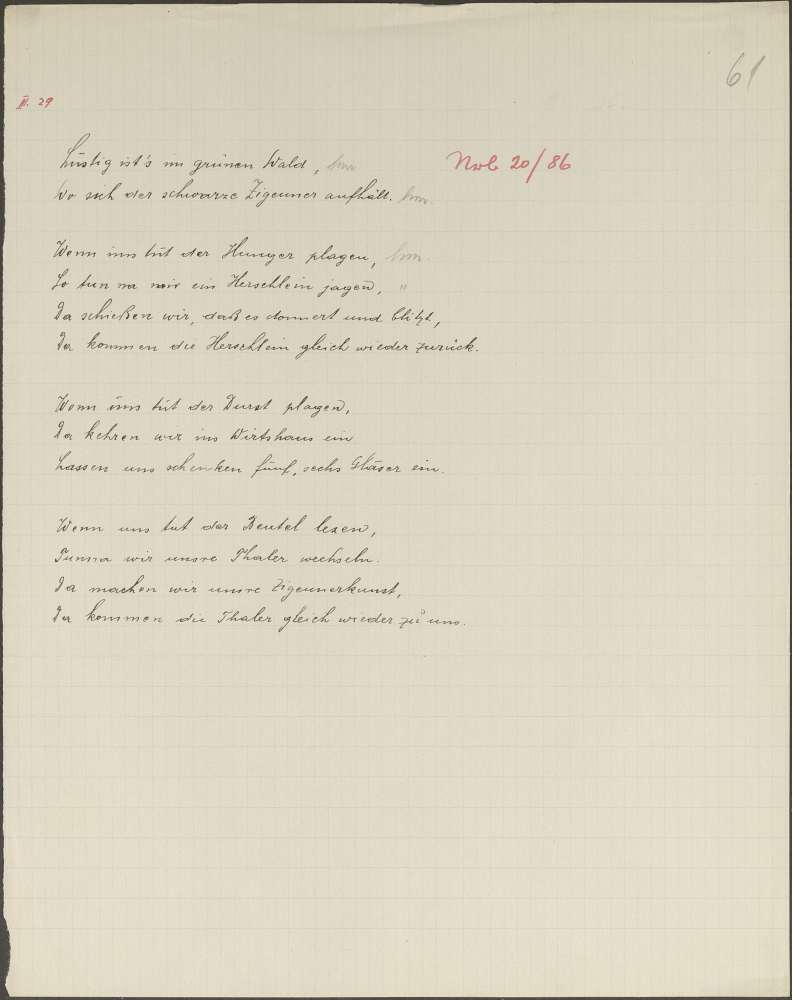 61
III. 29
Lustig ist's im grünen Wald, hm
Nol 20/86
Wo sich der schwarze Zigeuner aufhält. hm.
Wenn uns tut der Hunger plagen, hm.
So tun ma mir ein Herschlein jagen, "
Da schießen wir, daß es donnert und blitzt,
Da kommen die Herschlein gleich wieder zurück.
Wenn uns tut der Durst plagen,
Da kehren wir ins Wirtshaus ein
Lassen uns schenken fünf, sechs Gläser ein.
Wenn uns tut der Beutel lexen,
Tunna wir unsre Thaler wechseln.
Da machen wir unsre Zigeunerkunst,
Da kommen die Thaler gleich wieder zu uns.